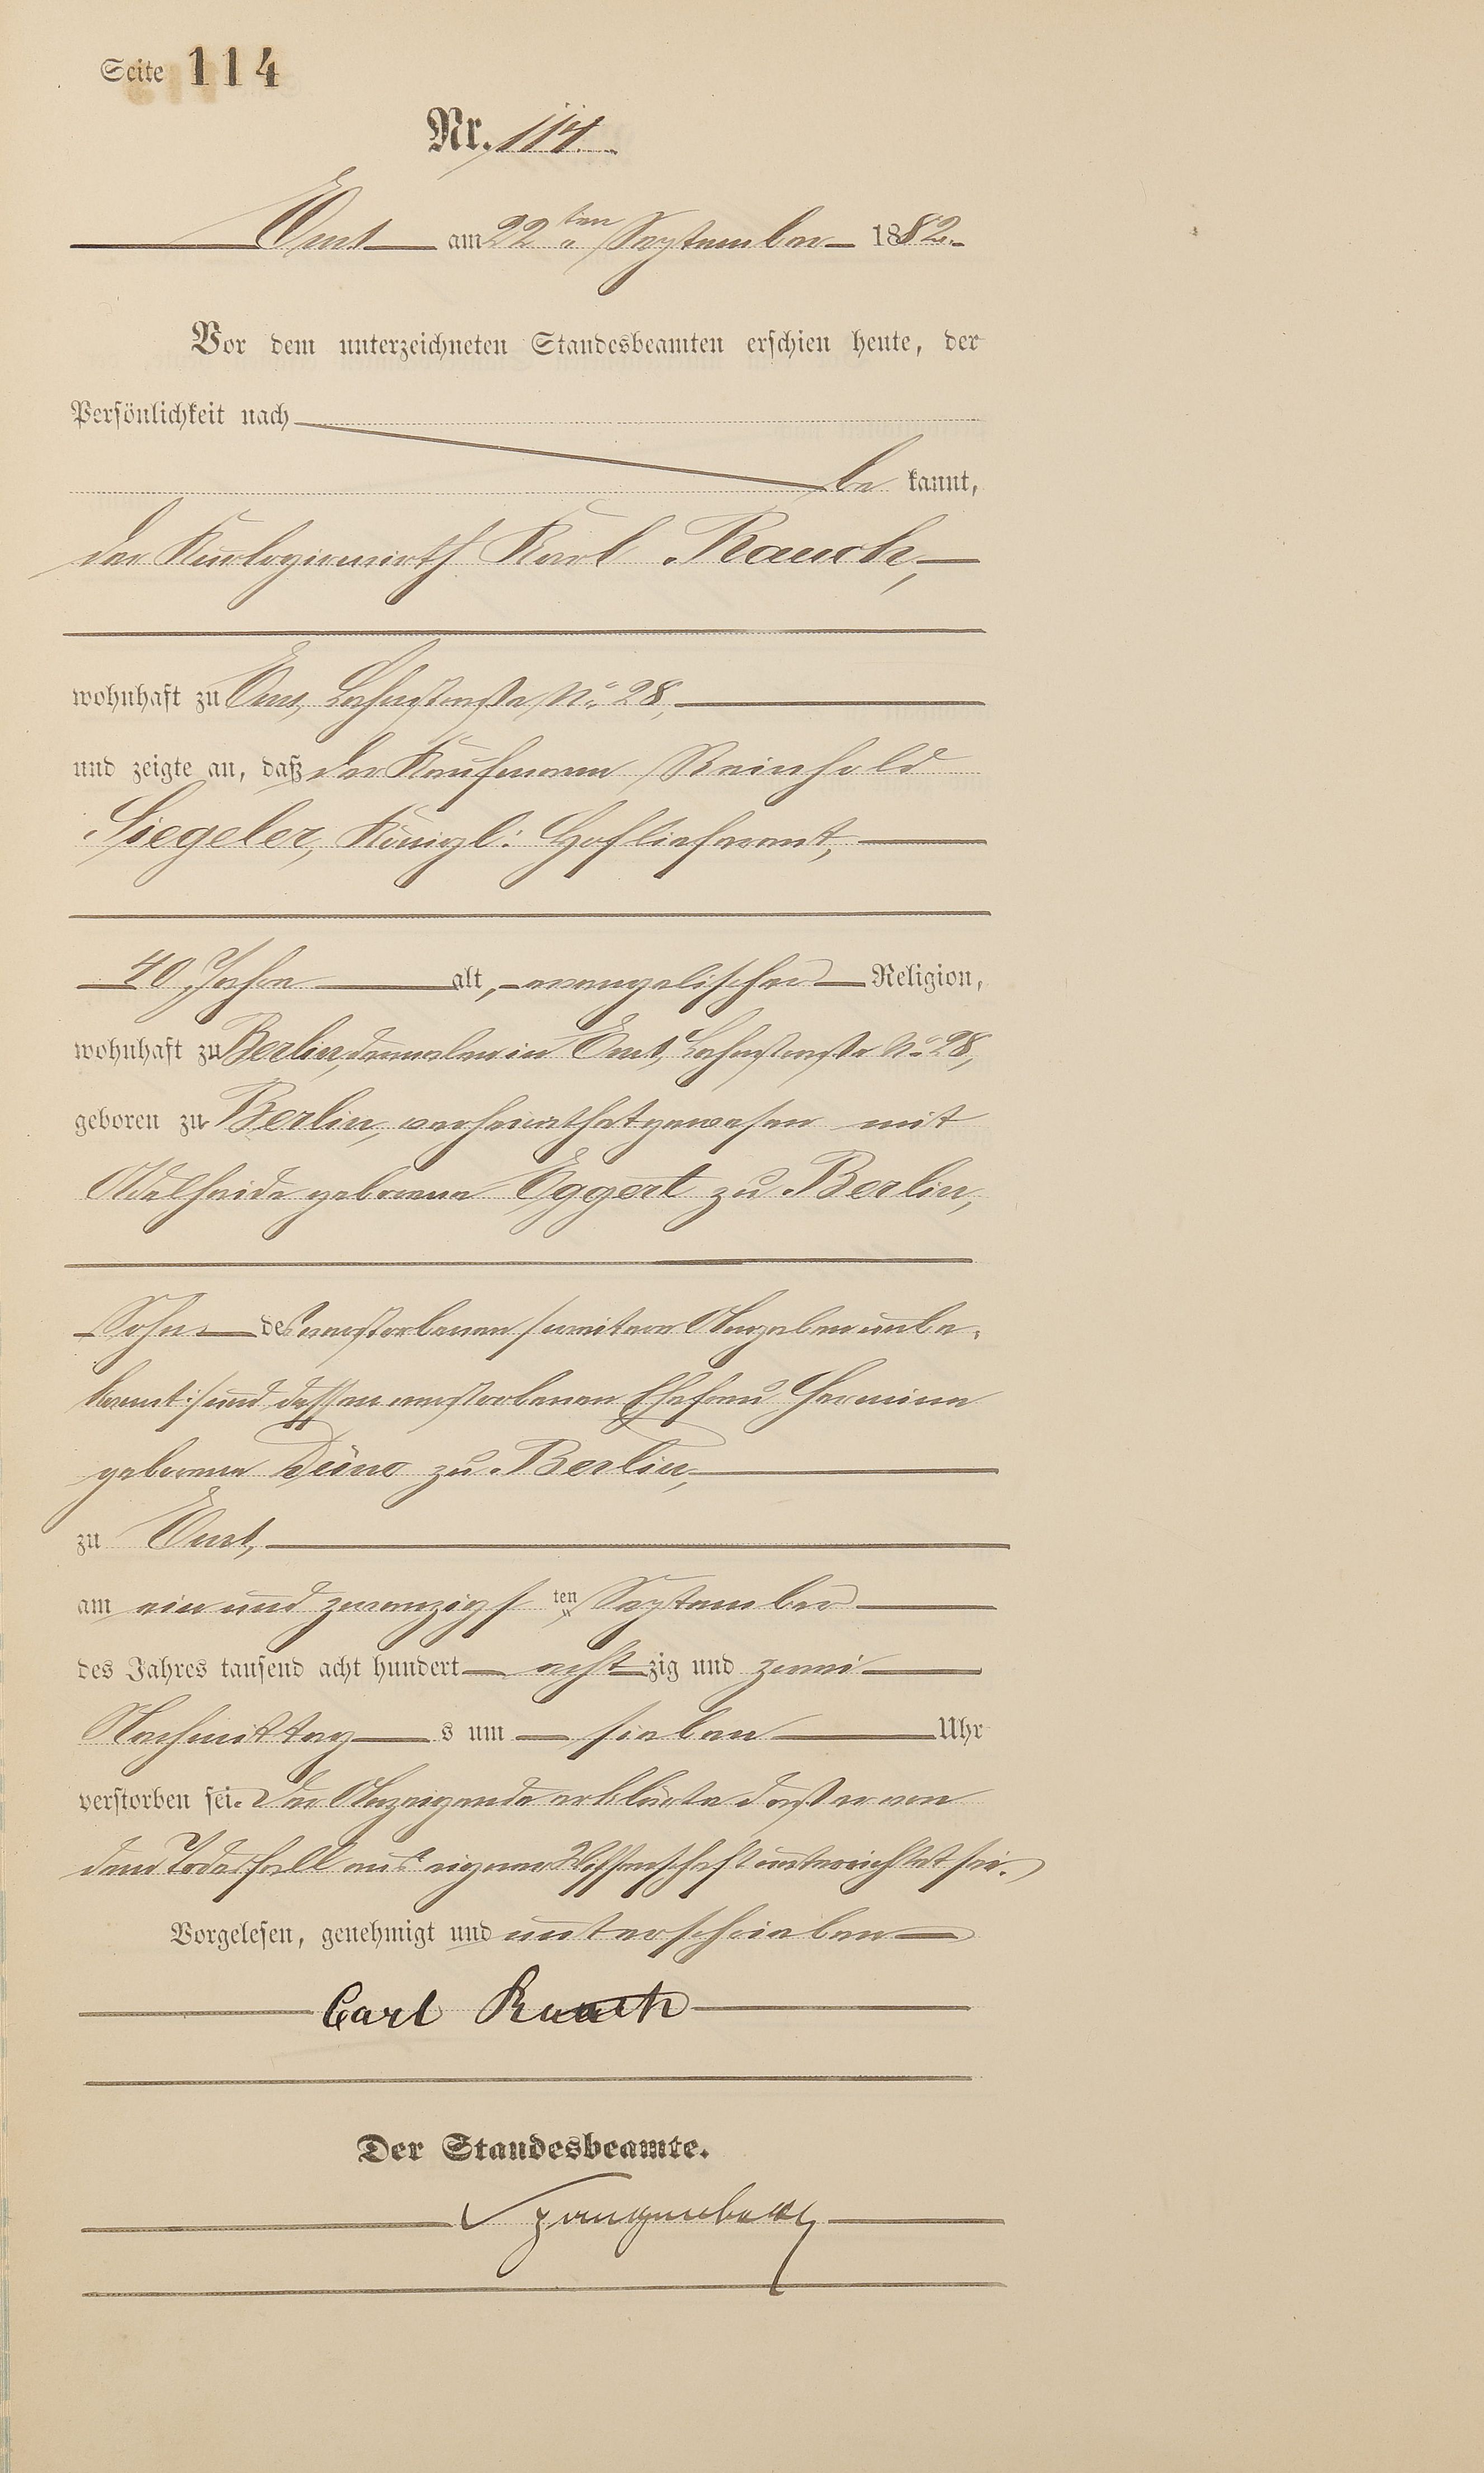 Seite 114
Nr. 114.
Ems am 22ten September 1882.
Vor dem unterzeichneten Standesbeamten erschien heute, der
Persönlichkeit nach
be kannt,
der Kurlogierwirth Karl Rauch,
wohnhaft zu Ems, Lahnstraße No 28,
und zeigte an, daß der Kaufmann Reinhold
Siegeler, Königl: Hoflieferant,
40 Jahre alt, evangelischer Religion,
wohnhaft zu Berlin, dermalen in Ems, Lahnstraße No 28,
geboren zu Berlin, verheirathet gewesen mit
Adelheide geborene Eggert zu Berlin,
Sohn des verstorbenen /: weitere Angaben unbe-
kannt :/ und dessen verstorbenen Ehefrau Hermine
geborene zu Berlin,
zu Ems,
am ein und zwanzigsten September
des Jahres tausend acht hundert achtzig und zwei
Nachmittags um sieben Uhr
verstorben sei. Der Anzeigende erklärte daß er von
dem Todesfall aus eigener Wissenschaft unterrichtet sei.
Vorgelesen, genehmigt und unterschrieben
Carl Rauch
Der Standesbeamte.